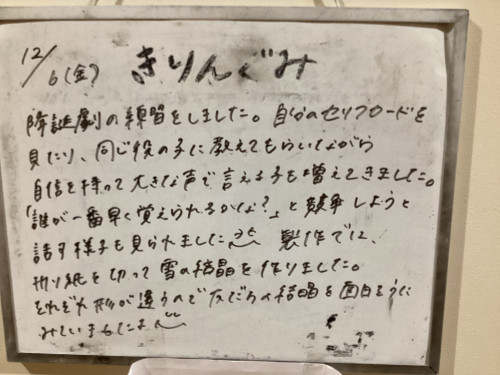 12/6(金) きりんぐみ
降誕劇の練習をしました。自分のセリフカードを
見たり、同じ役の子に教えてもらいながら
自信を持って大きな声で言える子も増えてきました。
「誰が一番早く覚えられるかな?」と競争しようと
話す様子も見られました 製作では、
折り紙を切って雪の結晶を作りました。
それぞれ形が違うので友だちの結晶を面白そうに
みていましたよ